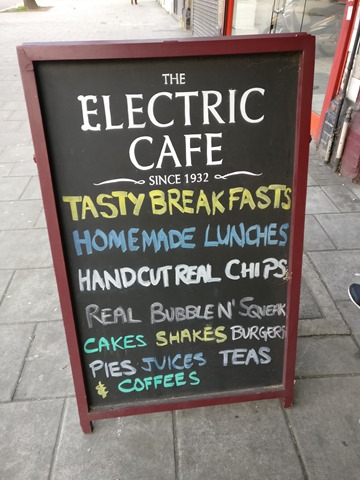 THE
ELECTRIC
CAFE
SINCE 1932
TASTY BREAKFASTS
HOMEMADE LUNCHES
HANDCUT REAL CHIPS
REAL BUBBLE N' SQUEAK
CAKES SHAKES BURGERS
PIES JUICES TEAS
& COFFEES